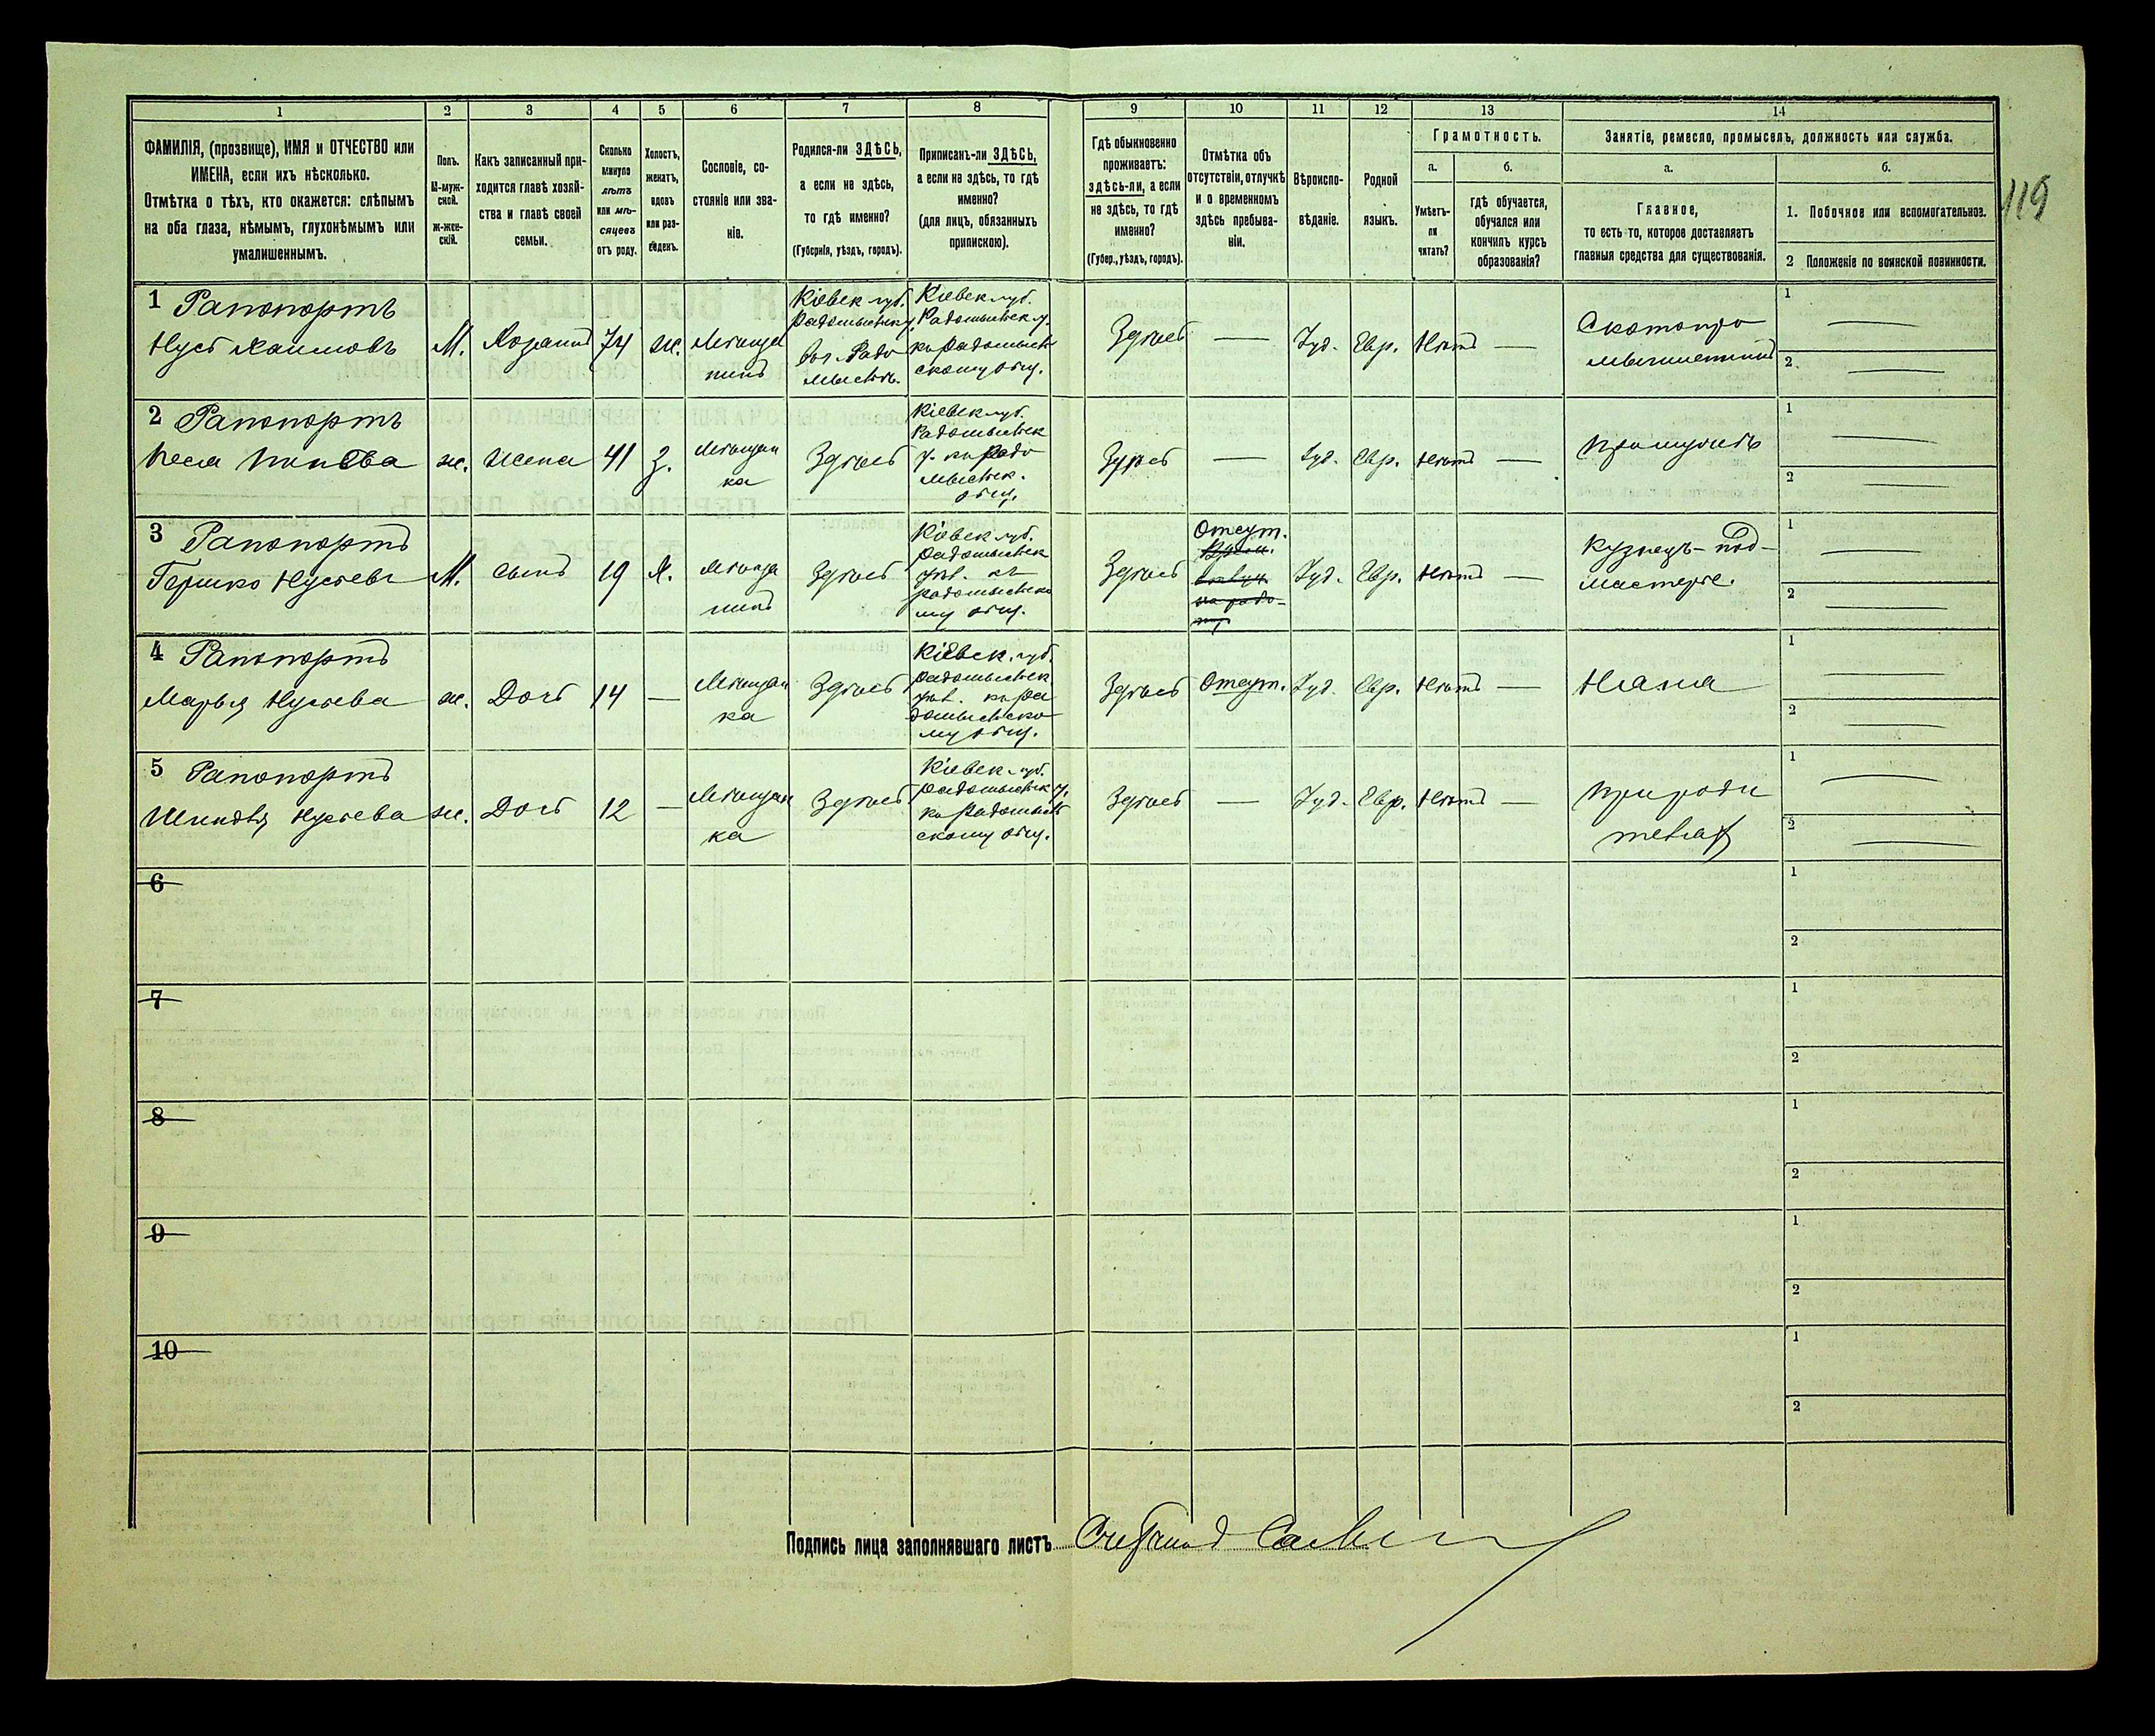 119
1
2
3
4
5
6
7
8
9
10
11
12
13
14
ФАМИЛІЯ, (прозвище), ИМЯ и ОТЧЕСТВО или
ИМЕНА, если ихъ нѣсколько.
Отмѣтка о тѣхъ, кто окажется: слѣпымъ
на оба глаза, нѣмымъ, глухонѣмымъ или
умалишеннымъ.
Полъ.
М-муж-
ской.
Ж-жен-
скій.
Какъ записанный при-
ходится главѣ хозяй-
ства и главѣ своей
семьи.
Сколько
минуло
лѣтъ
или мѣ-
сяцевъ
отъ роду.
Холостъ,
женатъ,
вдовъ
или раз-
веденъ.
Сословіе, со-
стояніе или зва-
ніе.
Родился-ли ЗДѢСЬ,
а если не здѣсь,
то гдѣ именно?
(Губернія, уѣздъ, городъ).
Приписанъ-ли ЗДѢСЬ,
а если не здѣсь, то гдѣ
именно?
(для лицъ, обязанныхъ
припискою).
Гдѣ обыкновенно
проживаетъ:
здѣсь-ли, а если
не здѣсь, то гдѣ
именно?
(Губер., уѣздъ, городъ).
Отмѣтка объ
отсутствіи, отлучкѣ
и о временномъ
здѣсь пребыва-
ніи.
Вѣроиспо-
вѣданіе.
Родной
языкъ.
Грамотность.
а.
Умѣетъ-
ли
читать?
б.
гдѣ обучается,
обучался или
кончилъ курсъ
образованія?
Занятіе, ремесло, промыселъ, должность или служба.
а.
Главное,
то есть то, которое доставляетъ
главныя средства для существованія.
б.
1. Побочное или вспомогательное.
2 Положеніе по воинской повинности.
1 Рапопортъ
Нусь Хаимовъ
М.
Хозяинъ
74
ж.
Мѣщан
нинъ
Кіевск губ.
Радомысльск у.
Радо
мысль.
Кіевск губ.
Радомысльск у.
къ Радомысль
скому общ.
Здѣсь
—
Іуд.
Евр.
Нѣтъ
—
Скотопро
мышленникъ
1
2
2 Рапопортъ
Песя
ж.
Жена
41
З.
Мѣщан
ка
Здѣсь
Кіевск губ.
Радомысльск
у. къ Радо
мысльск.
общ.
Здѣсь
—
Іуд.
Евр.
Нѣтъ
—
1
2
3 Рапопортъ
Гершко Нусевъ
М.
Сынъ
19
Х.
Мѣща
нинъ
Здѣсь
Кіевск губ.
Радомысльск
уѣз. къ
Радомысльско
му общ.
Здѣсь
Отсут.
Іуд.
Евр.
Нѣтъ
—
Кузнецъ - под-
мастерье.
1
2
4 Рапопортъ
Марья Нусьева
ж.
Дочь
14
—
Мѣщан
ка
Здѣсь
Кіевск. губ.
Радомысльск
уѣз. къ Ра
домысльско
му общ.
Здѣсь
Отсут.
Іуд.
Евр.
Нѣтъ
—
Няня
1
2
5 Рапопортъ
Шиндля Нусьева
ж.
Дочь
12
—
Мѣщан
ка
Здѣсь
Кіевск губ.
Радомысльск у.
къ Радомысль
скому общ.
Здѣсь
—
Іуд.
Евр.
Нѣтъ
—
При роди
теляхъ
1
2
6
1
2
7
1
2
8
1
2
9
1
2
10
1
2
Подпись лица заполнявшаго листъ